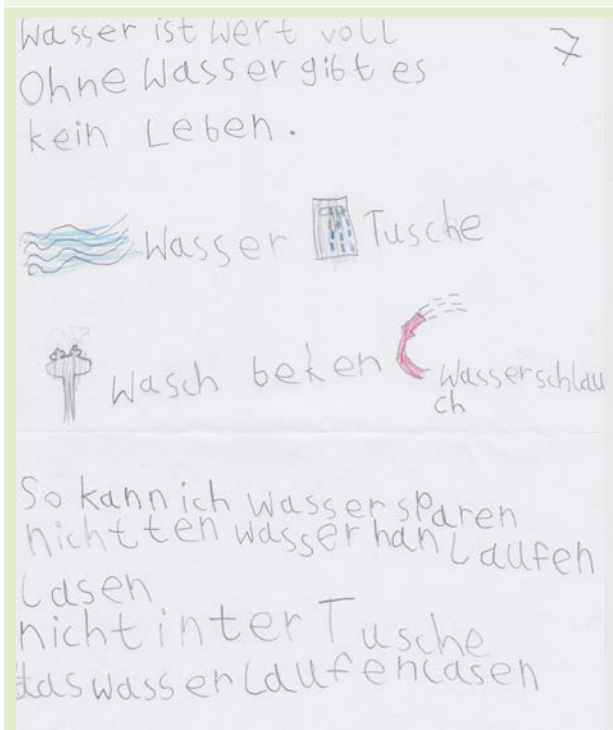 Wasser ist wert voll
7
Ohne Wasser gibt es
kein Leben.
Wasser
Tusche
Wasch beken
Wasserschlau
ch
So kann ich wasser sparen
nicht ten wasser han laufen
lasen
nicht in ter Tusche
das wasser laufen lasen